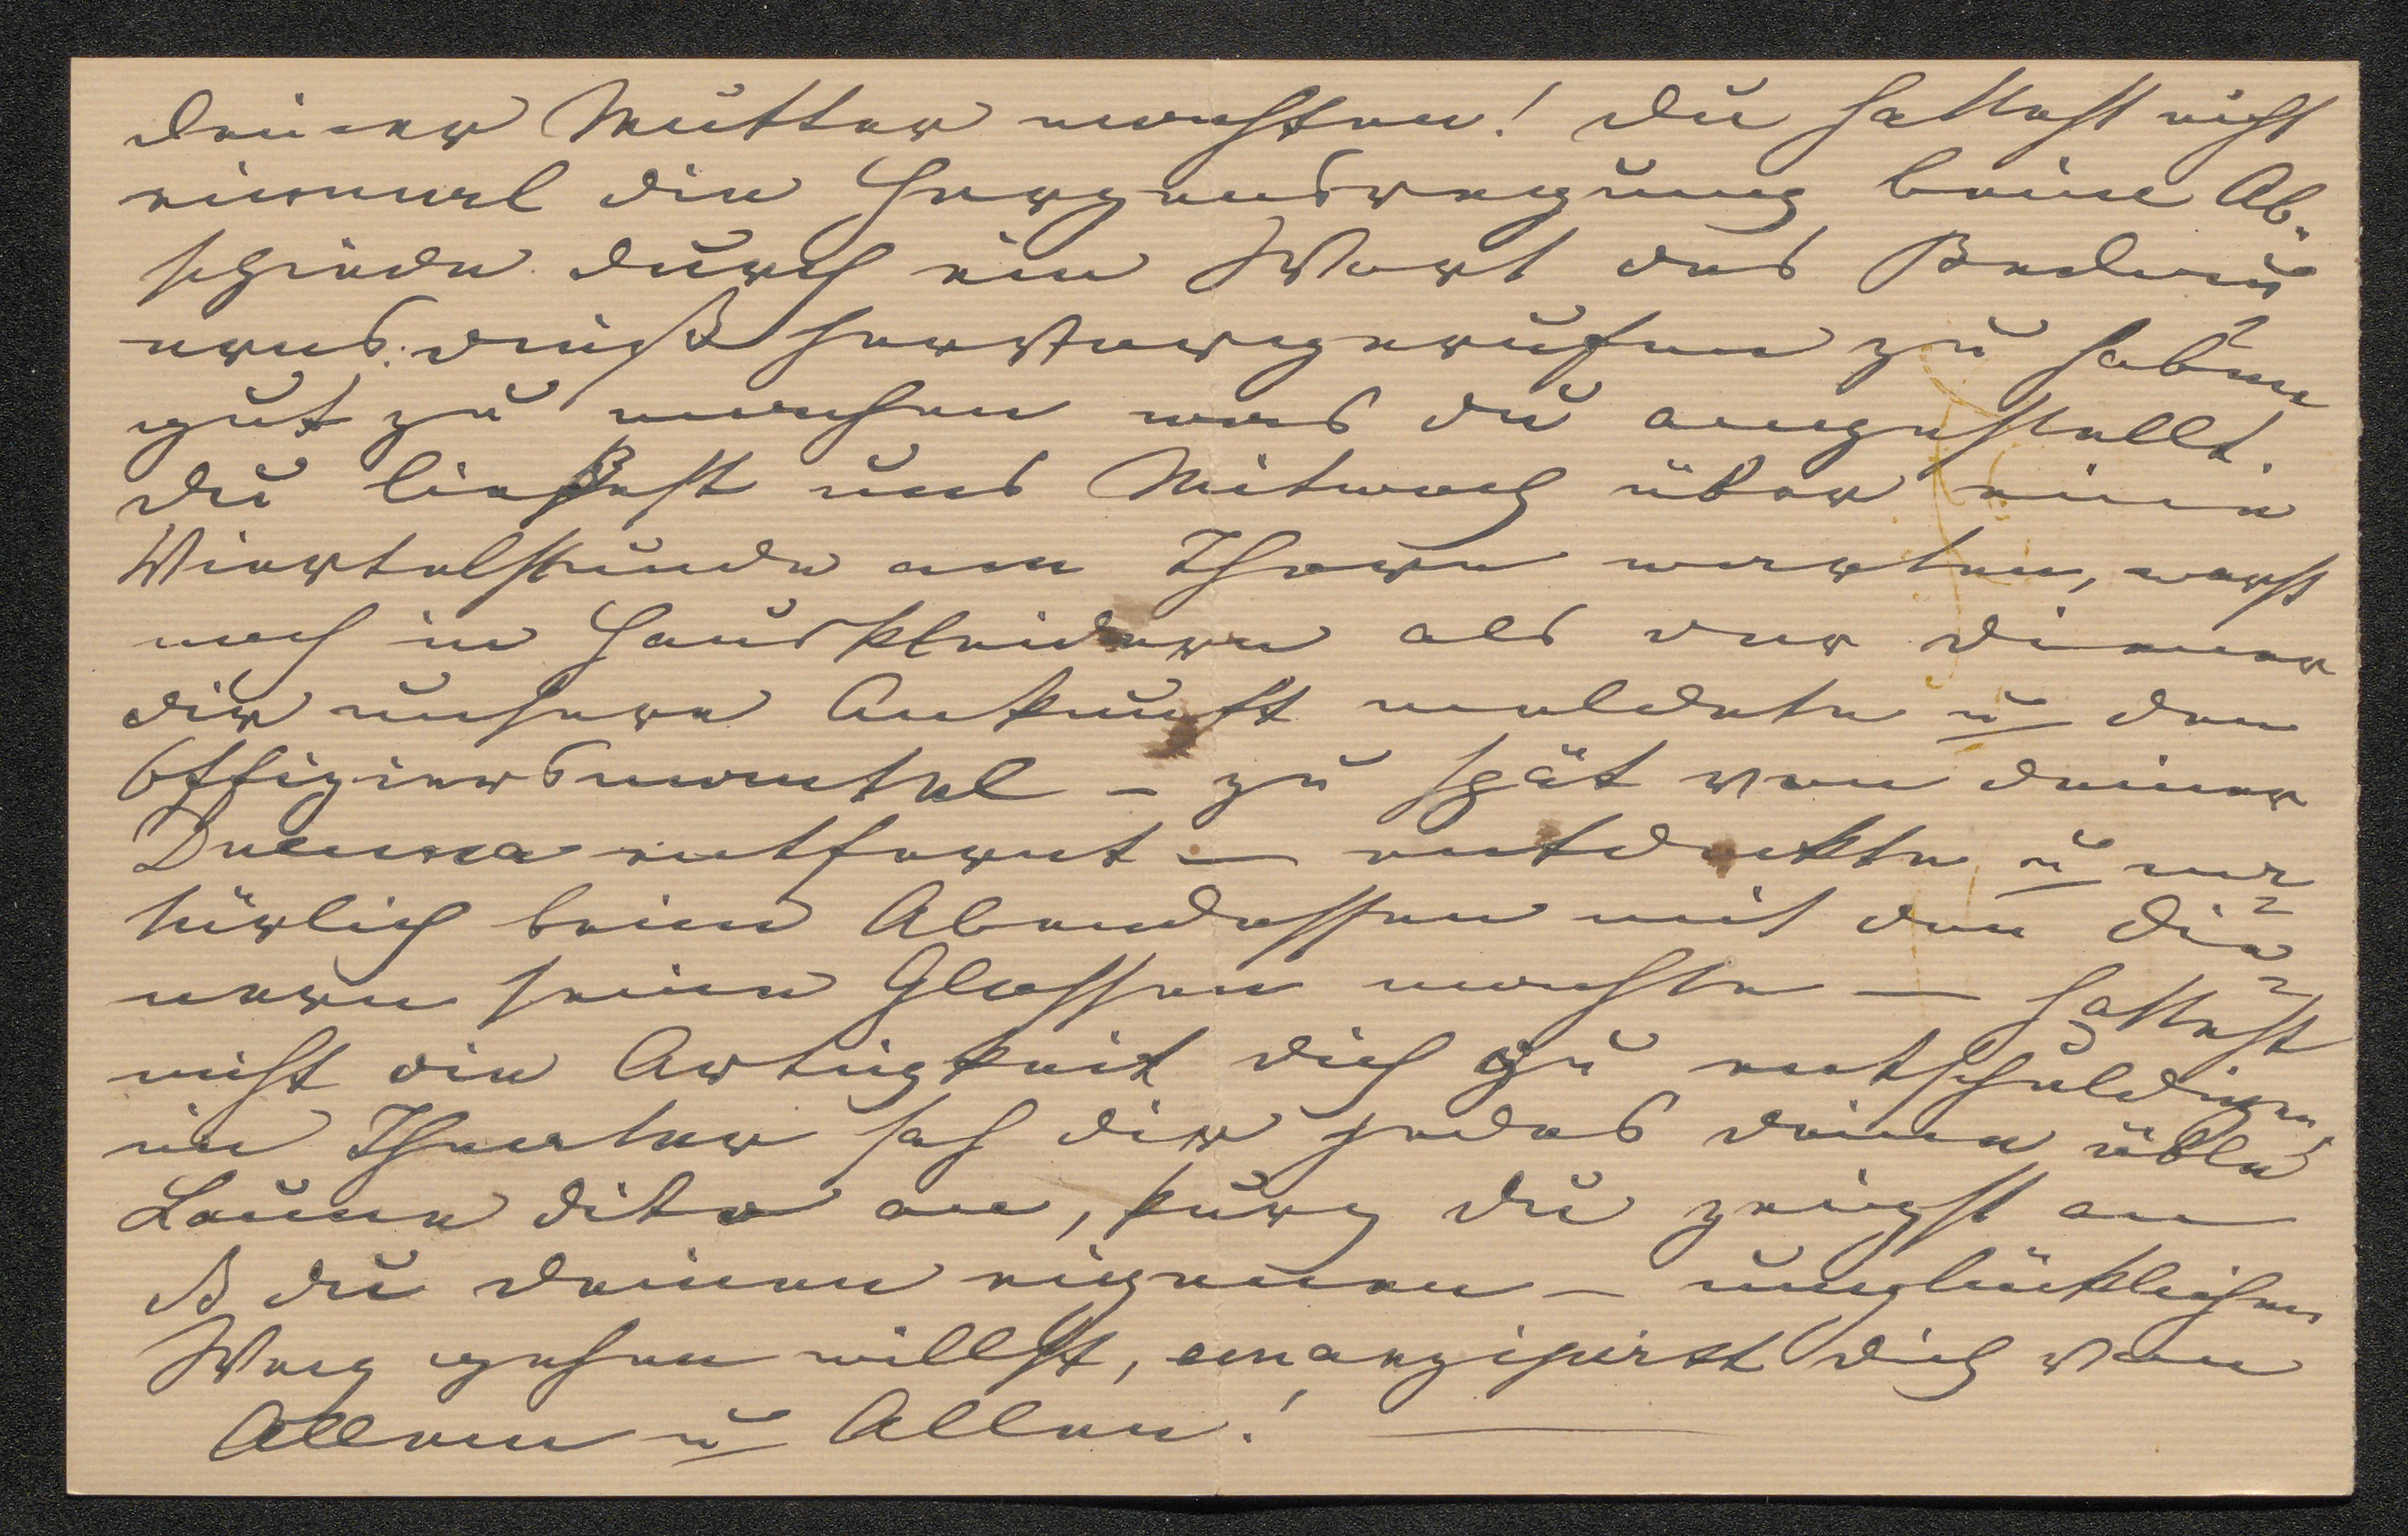 deiner Mutter machten! Du hattest nicht
einmal die Herzensregung beim Ab-
schiede durch ein Wort des Bedau
erns. dieß hervorgerufen zu haben
gut zu machen was du angestellt.
Du ließest uns Mitwoch über eine
Viertelstunde am Thore warten, warst
noch in Hauskleidern als der Diener
dir unsere Ankunft meldete u den
Offiziersmantel – zu spät von deiner
Duenna entfernt – entdeckte u na-
türlich beim Abendessen mit den Die-
nern seine Glossen machte – hattest
nicht die Artigkeit dich zu entschuldigen,
im Theater sah dir jedes deine üble
Laune dito an, kurz du zeigst an
dß du deinen eigenen – unglücklichen
Weg gehen willst, emanzipirst dich von
Allem u Allen! —